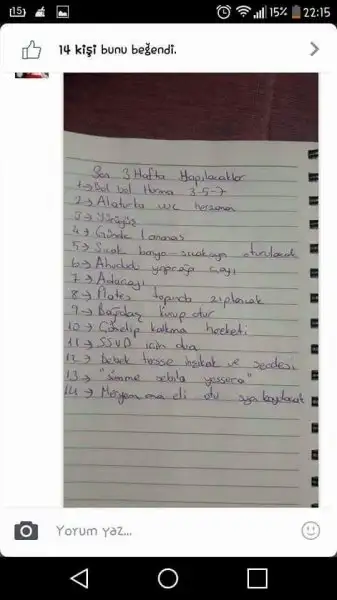 15% 22:15
14 kişi bunu beğendi.
Son 3 Hafta Yapılacaklar
1→ Bol bol Hurma 3-5-7
2→ Alaturka wc
3→ Yürüyüş
4→ Günde 1 ananas
5→ Sıcak banyo sıcak suya oturulacak
6→ Ahududu yaprağı çayı
7→ Adaçayı
8→ Plates topunda zıplamak
9→ Bağdaş kurup otur
10→ Çömelip kalkma hareketi
11→ SSVD için dua
12→ Bebek hisse inşikak ve
13→ "Sümme sebile yessera"
14→ Meryem ana eli otu suya
Yorum yaz...